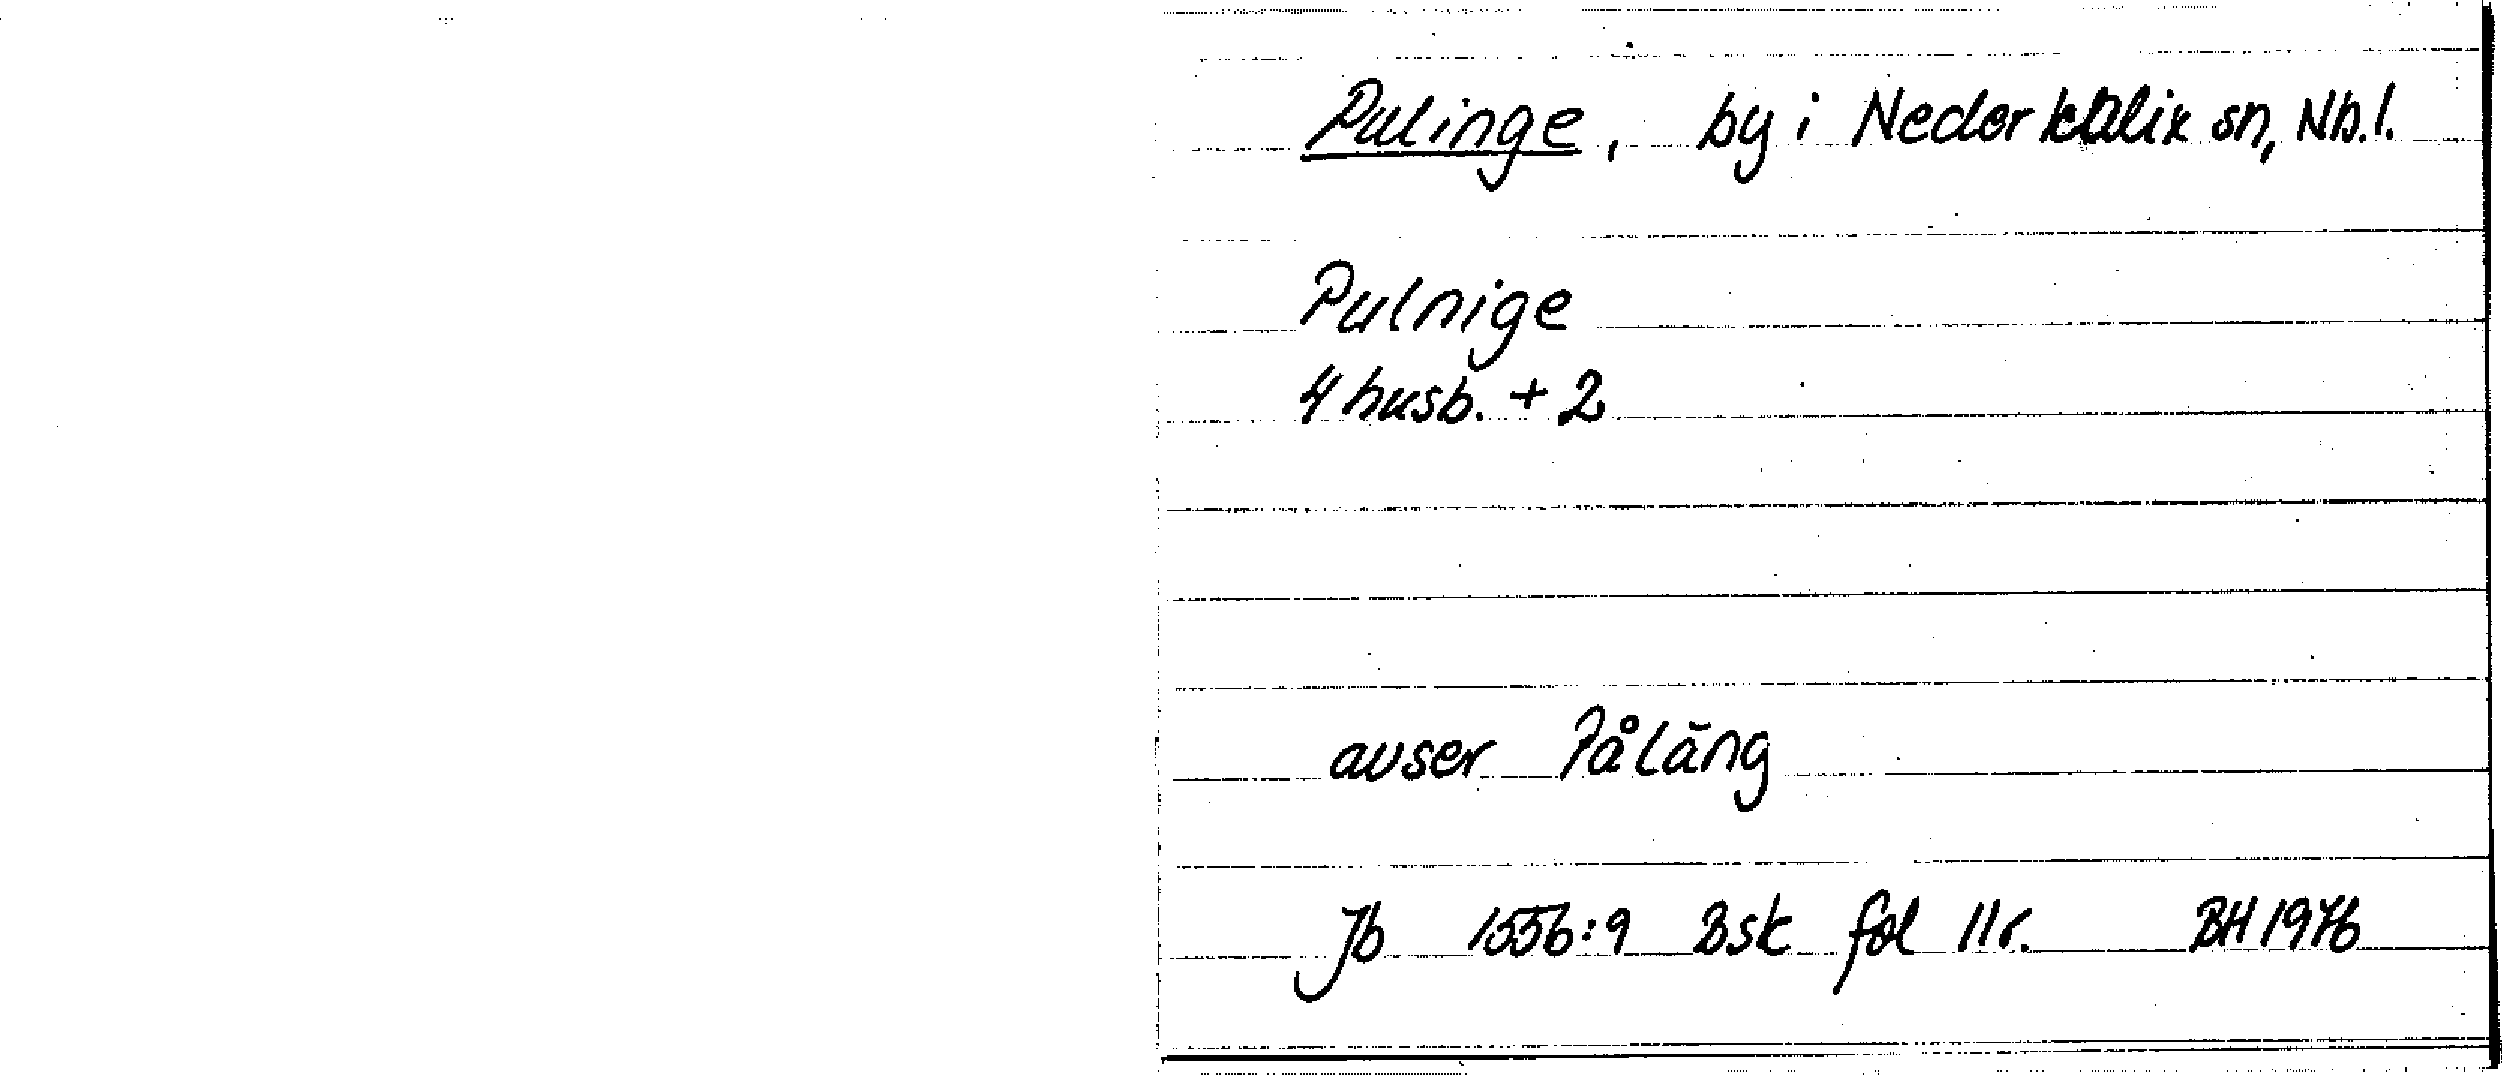 Pulinge, by i Nederkalix sn, Nb.l.
Pulnige
4 husb. + 2
avser Påläng
Jb 1556:9 Bsk fol 11r. BH 1976